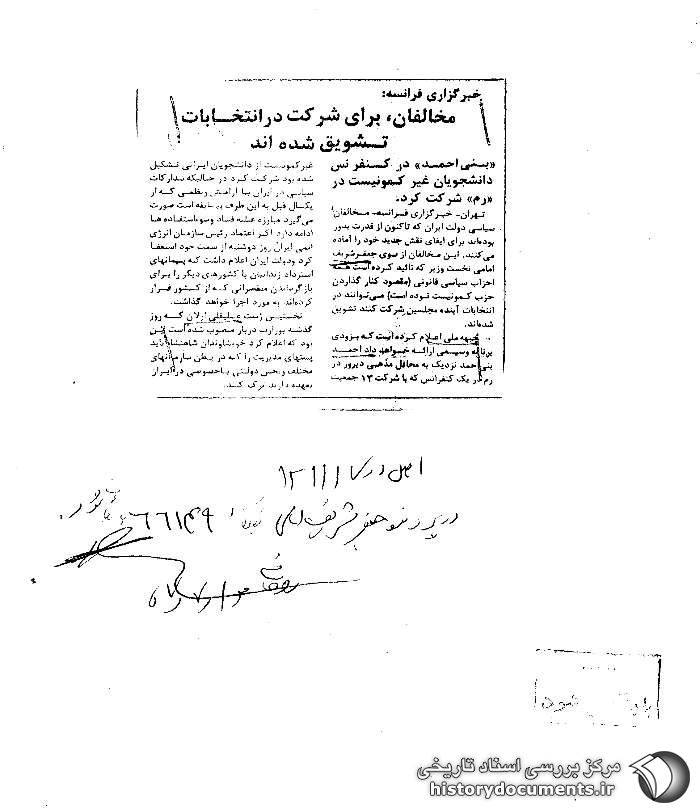 خبرگزاری فرانسه:
مخالفان، برای شرکت در انتخابات
تشویق شده اند
«بنی احمد» در کنفرنس
دانشجویان غیر کمونیست در
«رم» شرکت کرد.
تهران- خبرگزاری فرانسه- مخالفان
سیاسی دولت ایران که تاکنون از قدرت بدور
بوده‌اند برای ایفای نقش جدید خود را آماده
می‌کنند. این مخالفان از سوی جعفر شریف
امامی نخست وزیر که تائید کرده است همه
احزاب سیاسی قانونی (مقصود کنار گذاردن
حزب کمونیست توده است) می‌توانند در
انتخابات آینده مجلسین شرکت کنند تشویق
شده‌اند.
جبهه ملی اعلام کرده است که بزودی
برنامه وسیعی ارائه خواهد داد احمد
بنی احمد نزدیک به محافل مذهبی دیروز در
رم در یک کنفرانس که با شرکت ۱۳ جمعیت
غیر کمونیست از دانشجویان ایرانی تشکیل
شده بود شرکت کرد در حالیکه تدارکات
سیاسی در ایران با آرامش و نظمی که از
یکسال قبل به این طرف بی‌سابقه است صورت
می‌گیرد مبارزه علیه فساد و سوءاستفاده‌ها
ادامه دارد. اکبر اعتماد رئیس سازمان انرژی
اتمی ایران روز دوشنبه از سمت خود استعفا
کرد و دولت ایران اعلام داشت که پیمانهای
استرداد زندانیان با کشورهای دیگر را برای
بازگرداندن مقصرانی که از کشور فرار
کرده‌اند به مورد اجرا خواهد گذاشت.
نخستین ژست علیقلی اردلان که روز
گذشته بوزارت دربار منصوب شده است این
بود که اعلام کرد خویشاوندان شاهنشاه باید
پستهای مدیریت را که در بطن سازمانهای
مختلف و بخش دولتی یا خصوصی در ایران
بعهده دارند ترک کنند.
اصل در ک ۱۲۱۱۱
در پرونده جعفر شریف امامی ۶۶۱۴۹
شود
مرکز بررسی اسناد تاریخی
historydocuments.ir